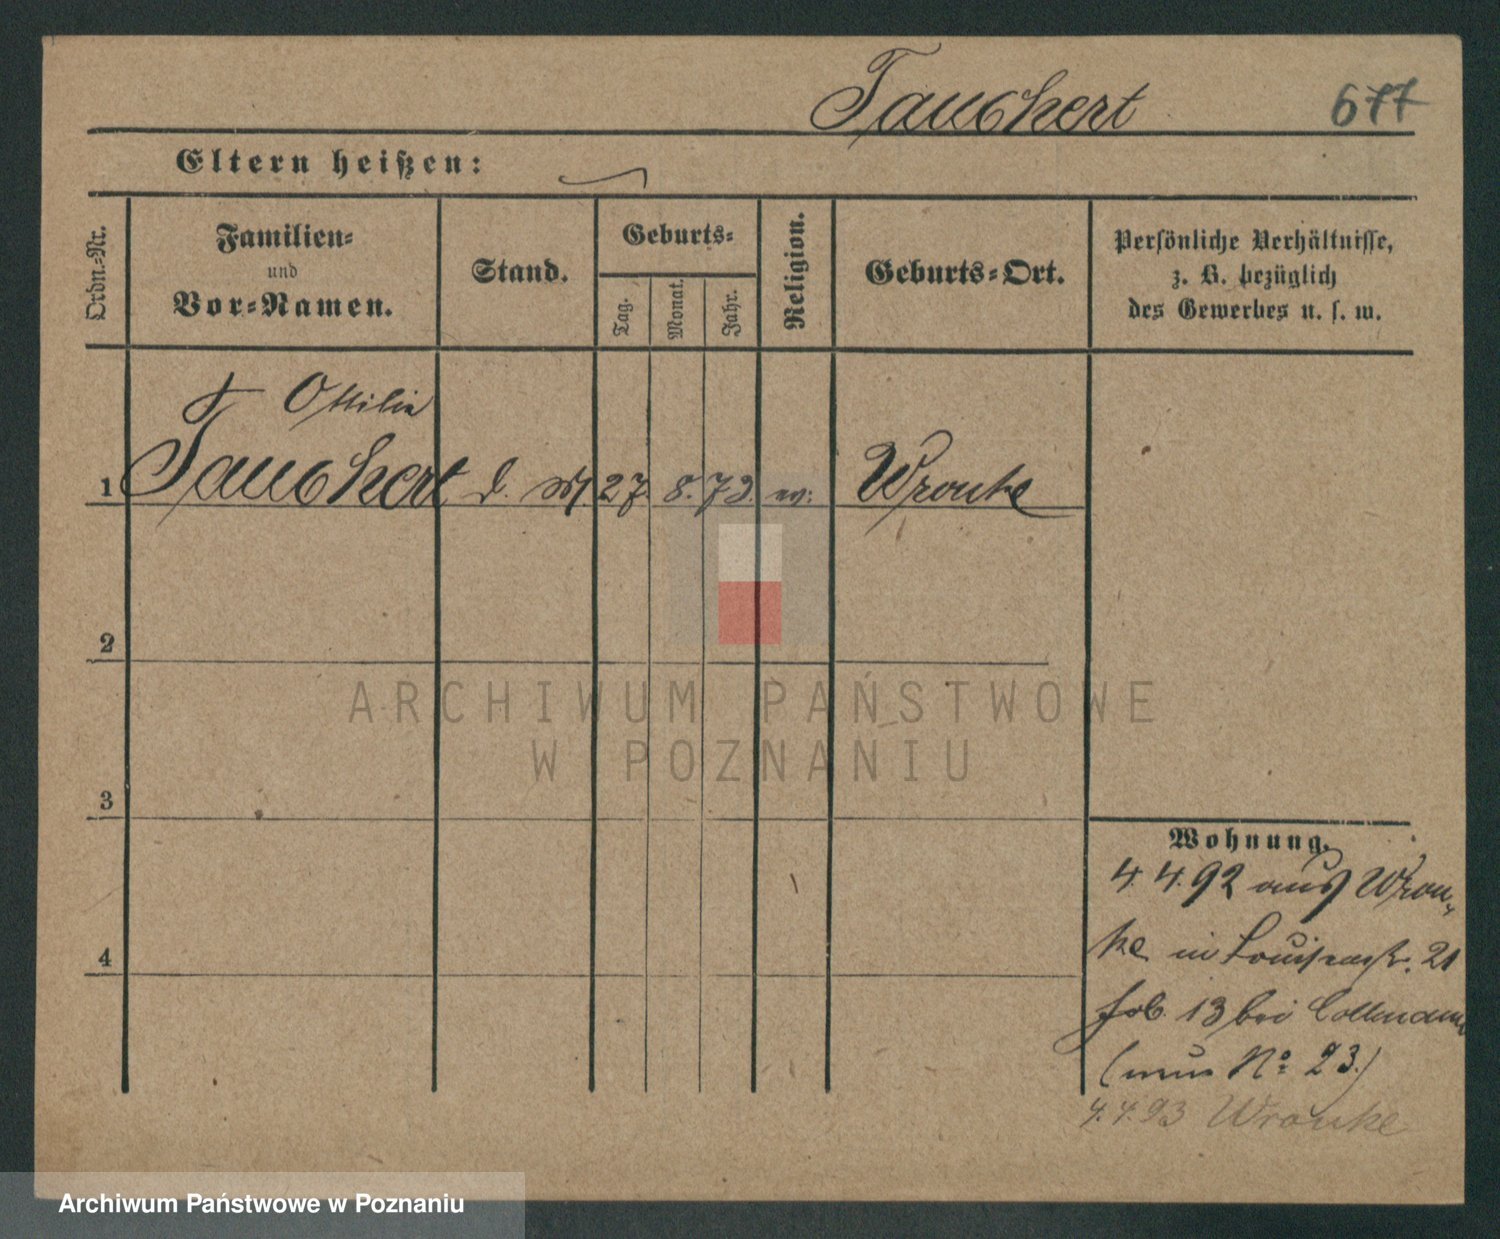 Tauchert 677
Eltern heißen:
Ordn.-Nr.
Familien-
und
Vor-Namen.
Stand.
Geburts-
Tag.
Monat.
Jahr.
Religion.
Geburts-Ort.
Persönliche Verhältnisse,
z. B. bezüglich
des Gewerbes u. s. w.
Ottilie
1 Tauchert d. 27. 8. 73. ev: Wronke
2
3
4
Wohnung.
4. 4. 92 aus Wron-
ke in Louisenstr. 21
fol. 13 bei
(neue No 23.)
4. 4. 93 Wronke
ARCHIWUM PAŃSTWOWE
W POZNANIU
Archiwum Państwowe w Poznaniu